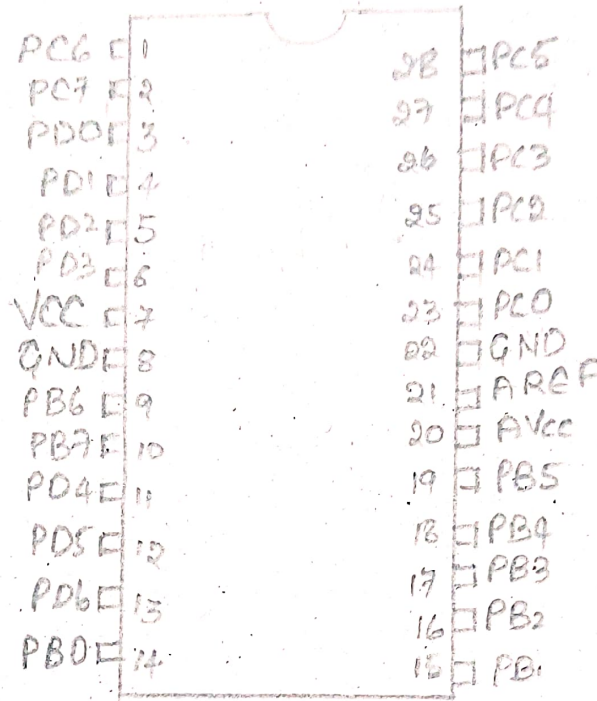 PC6 1
PC7 2
PD0 3
PD1 4
PD2 5
PD3 6
VCC 7
GND 8
PB6 9
PB7 10
PD4 11
PD5 12
PD6 13
PB0 14
28 PC5
27 PC4
26 PC3
25 PC2
24 PC1
23 PC0
22 GND
21 AREF
20 AVcc
19 PB5
18 PB4
17 PB3
16 PB2
15 PB1